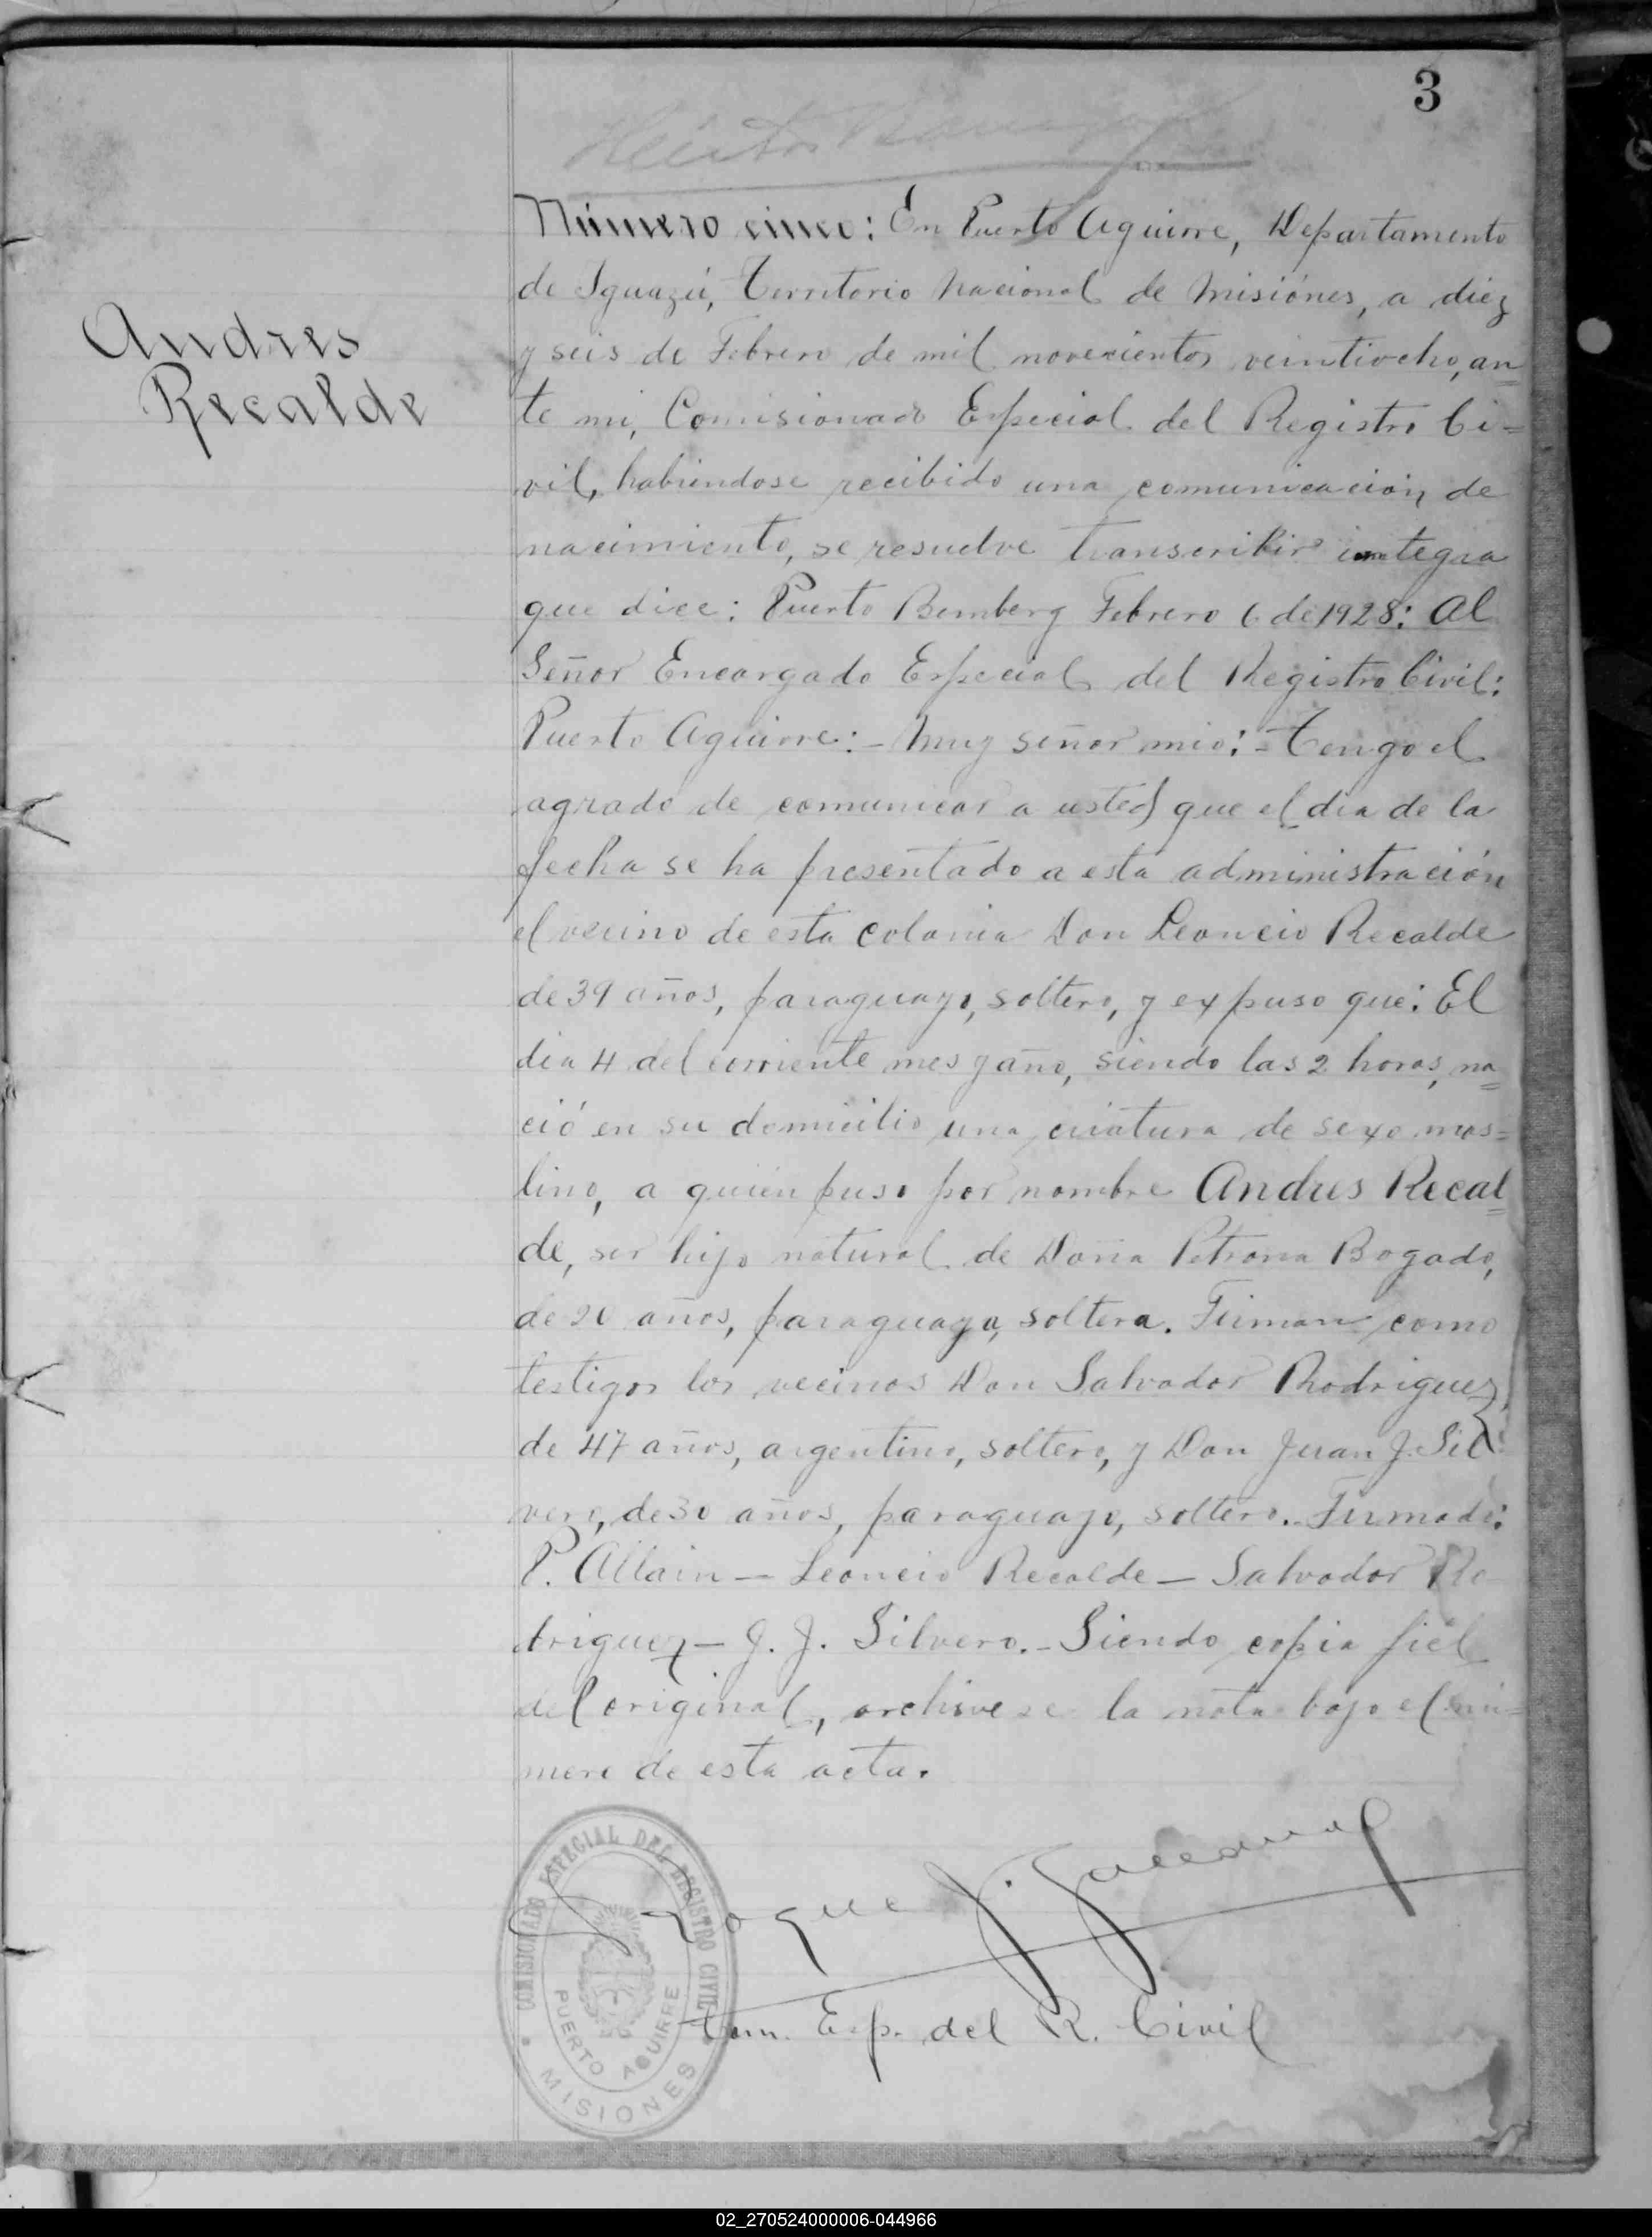 3
Número cinco: En Puerto Aguirre, Departamento
de Iguazú, Territorio Nacional de Misiónes, a diez
Andres
y seis de Febrero de mil novecientos veintiocho, an=
Recalde
te mi, Comisionado Especial del Registro Ci=
vil, habiendose recibido una comunicación de
nacimiento, se resuelve transcribir integra
que dice: Puerto Bemberg Febrero 6 de 1928: Al
Señor Encargado Especial del Registro Civil:
Puerto Aguirre:- Muy señor mio:- Tengo el
agrado de comunicar a usted que el dia de la
fecha se ha presentado a esta administración
el vecino de esta colonia Don Leoncio Recalde
de 39 años, paraguayo, soltero, y expuso que: El
dia 4 del corriente mes y año, siendo las 2 horas, na=
ció en su domicilio una criatura de sexo mas=
lino, a quien puso por nombre Andres Recal=
de, ser hijo natural de Doña Petrona Bogado,
de 20 años, paraguaya, soltera. Firman como
testigos los vecinos Don Salvador Rodriguez,
de 47 años, argentino, soltero, y Don Juan J. Sil
vero, de 30 años, paraguayo, soltero.- Firmado:
P. Allain - Leoncio Recalde - Salvador Ro
driguez - J. J. Silvero.- Siendo copia fiel
del original, archivese la nota bajo el nú=
mero de esta acta.
Roque J.
Com. Esp. del R. Civil
COMISIONADO ESPECIAL DEL REGISTRO CIVIL
PUERTO AGUIRRE
MISIONES
02_270524000006-044966